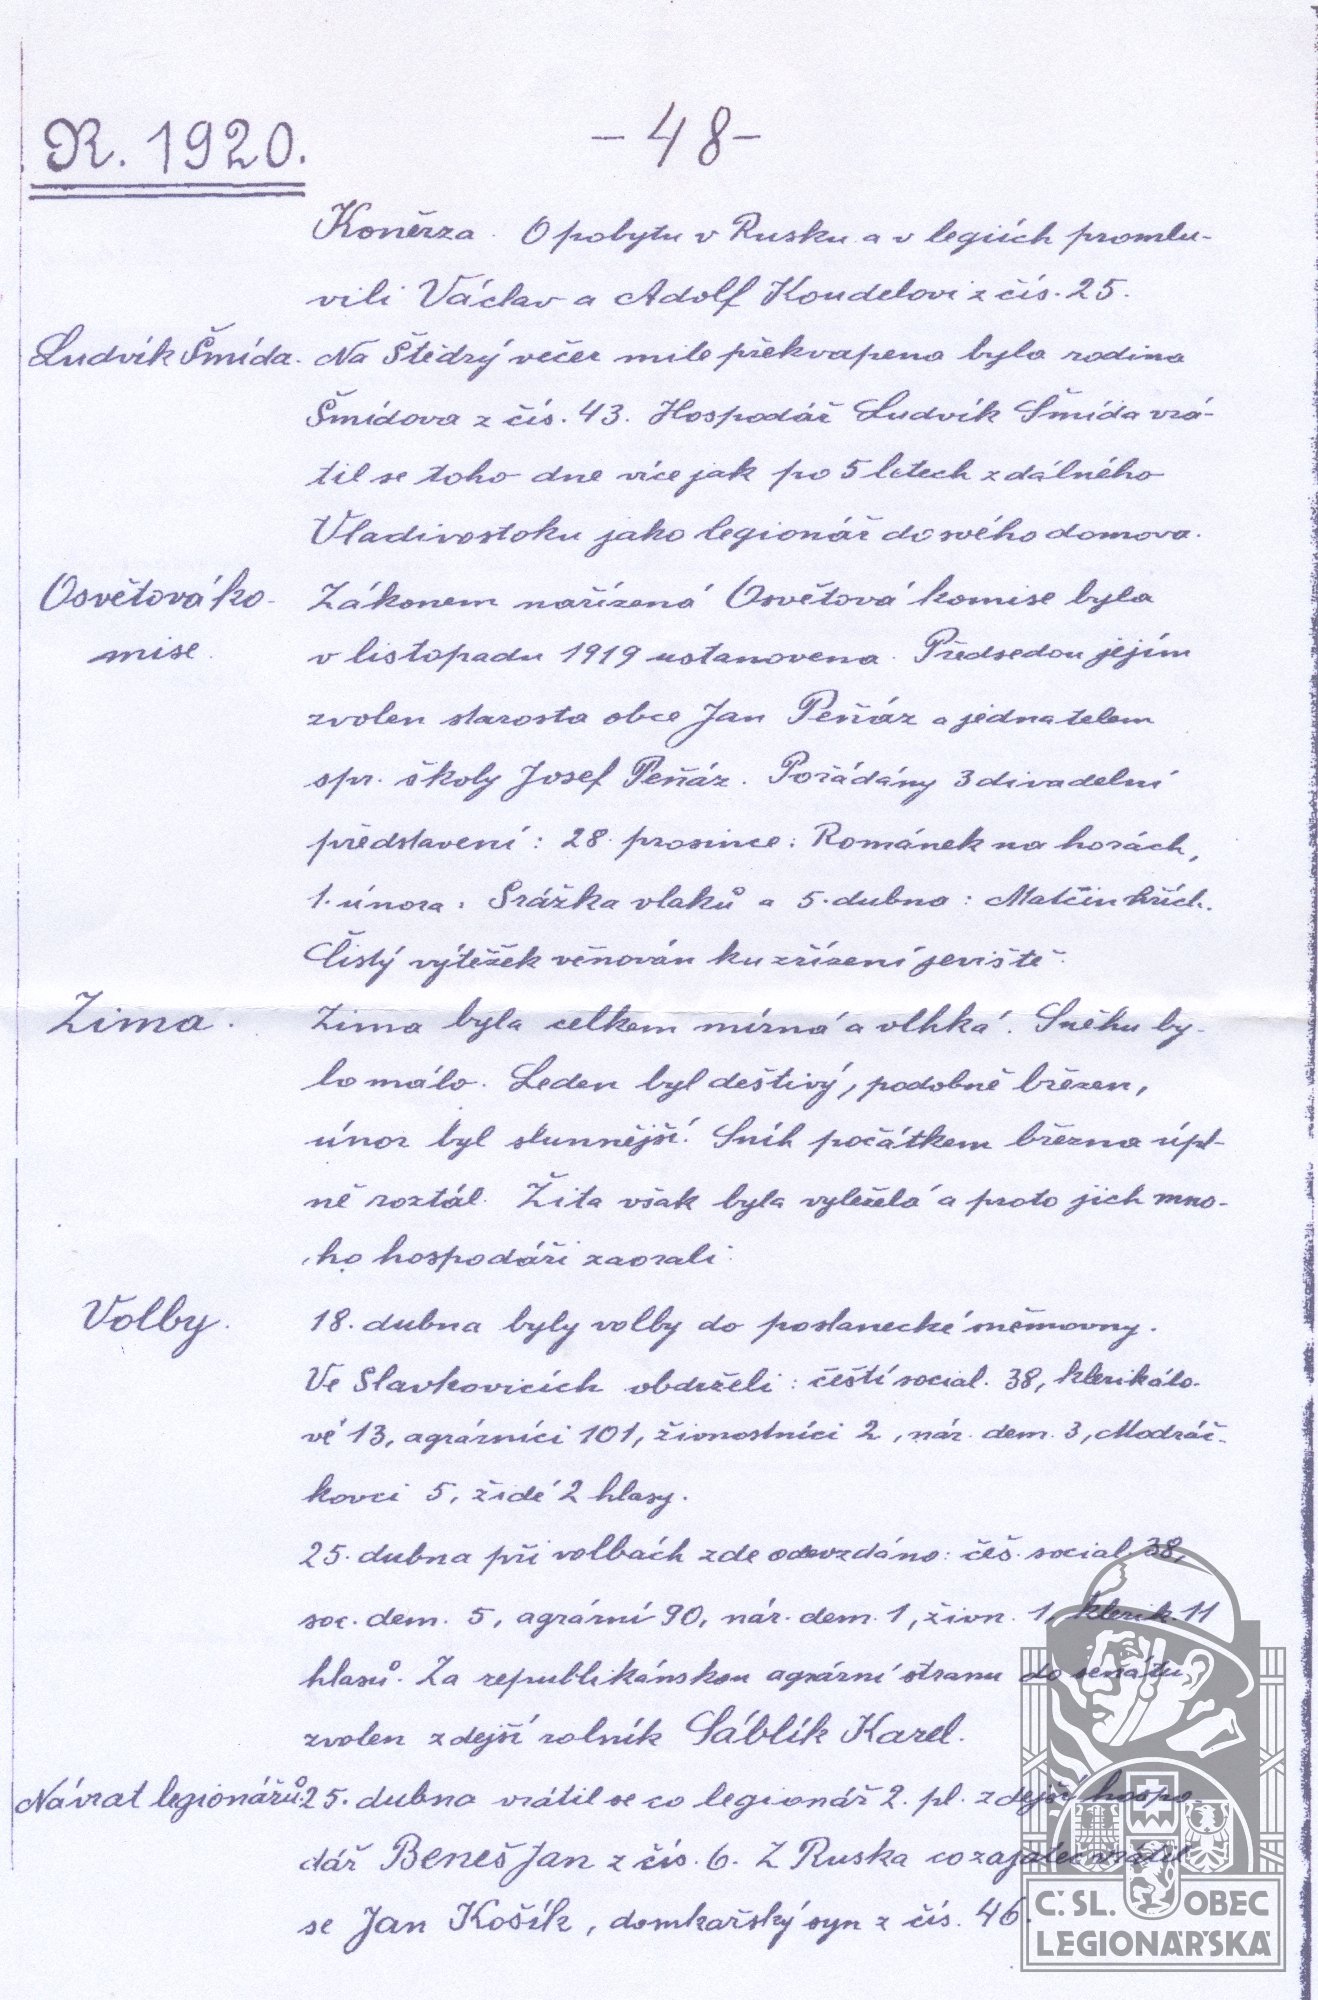 R. 1920.
-48-
Koněrza. O pobytu v Rusku a v legiích promlu-
vili Václav a Adolf Koudelovi z čís. 25.
Ludvík Šmída. Na Štědrý večer mile překvapena byla rodina
Šmídova z čís. 43. Hospodář Ludvík Šmída vrá-
til se toho dne více jak po 5 letech z dálného
Vladivostoku jako legionář do svého domova.
Osvětová ko- Zákonem nařízená Osvětová komise byla
mise. v listopadu 1919 ustanovena. Předsedou jejím
zvolen starosta obce Jan Peňáz a jednatelem
spr. školy Josef Peňáz. Pořádány 3 divadelní
představení: 28. prosince: Románek na horách,
1. února: Srážka vlaků a 5. dubna: Matčin hřích.
Čistý výtěžek věnován ku zřízení jeviště.
Zima. Zima byla celkem mírná a vlhká. Sněhu by-
lo málo. Leden byl deštivý, podobně březen,
únor byl slunnější. Sníh počátkem března úpl-
ně roztál. Žita však byla vyležela a proto jich mno-
ho hospodáři zaorali.
Volby. 18. dubna byly volby do poslanecké sněmovny.
Ve Slavkovicích obdrželi: čeští social. 38, klerikálo-
vé 13, agrárníci 101, živnostníci 2, nár. dem. 3, Modráč-
kovci 5, židé 2 hlasy.
25. dubna při volbách zde odevzdáno: češ. social. 38,
soc. dem. 5, agrární 90, nár. dem. 1, živn. 1, klerik. 11
hlasů. Za republikánskou agrární stranu do senátu
zvolen zdejší rolník Sáblík Karel.
Návrat legionářů. 25. dubna vrátil se co legionář 2. pl. zdejší hospo-
dář Beneš Jan z čís. 6. Z Ruska co zajatec vrátil
se Jan Košík, domkařský syn z čís. 46.
Č. SL. OBEC
LEGIONÁŘSKÁ